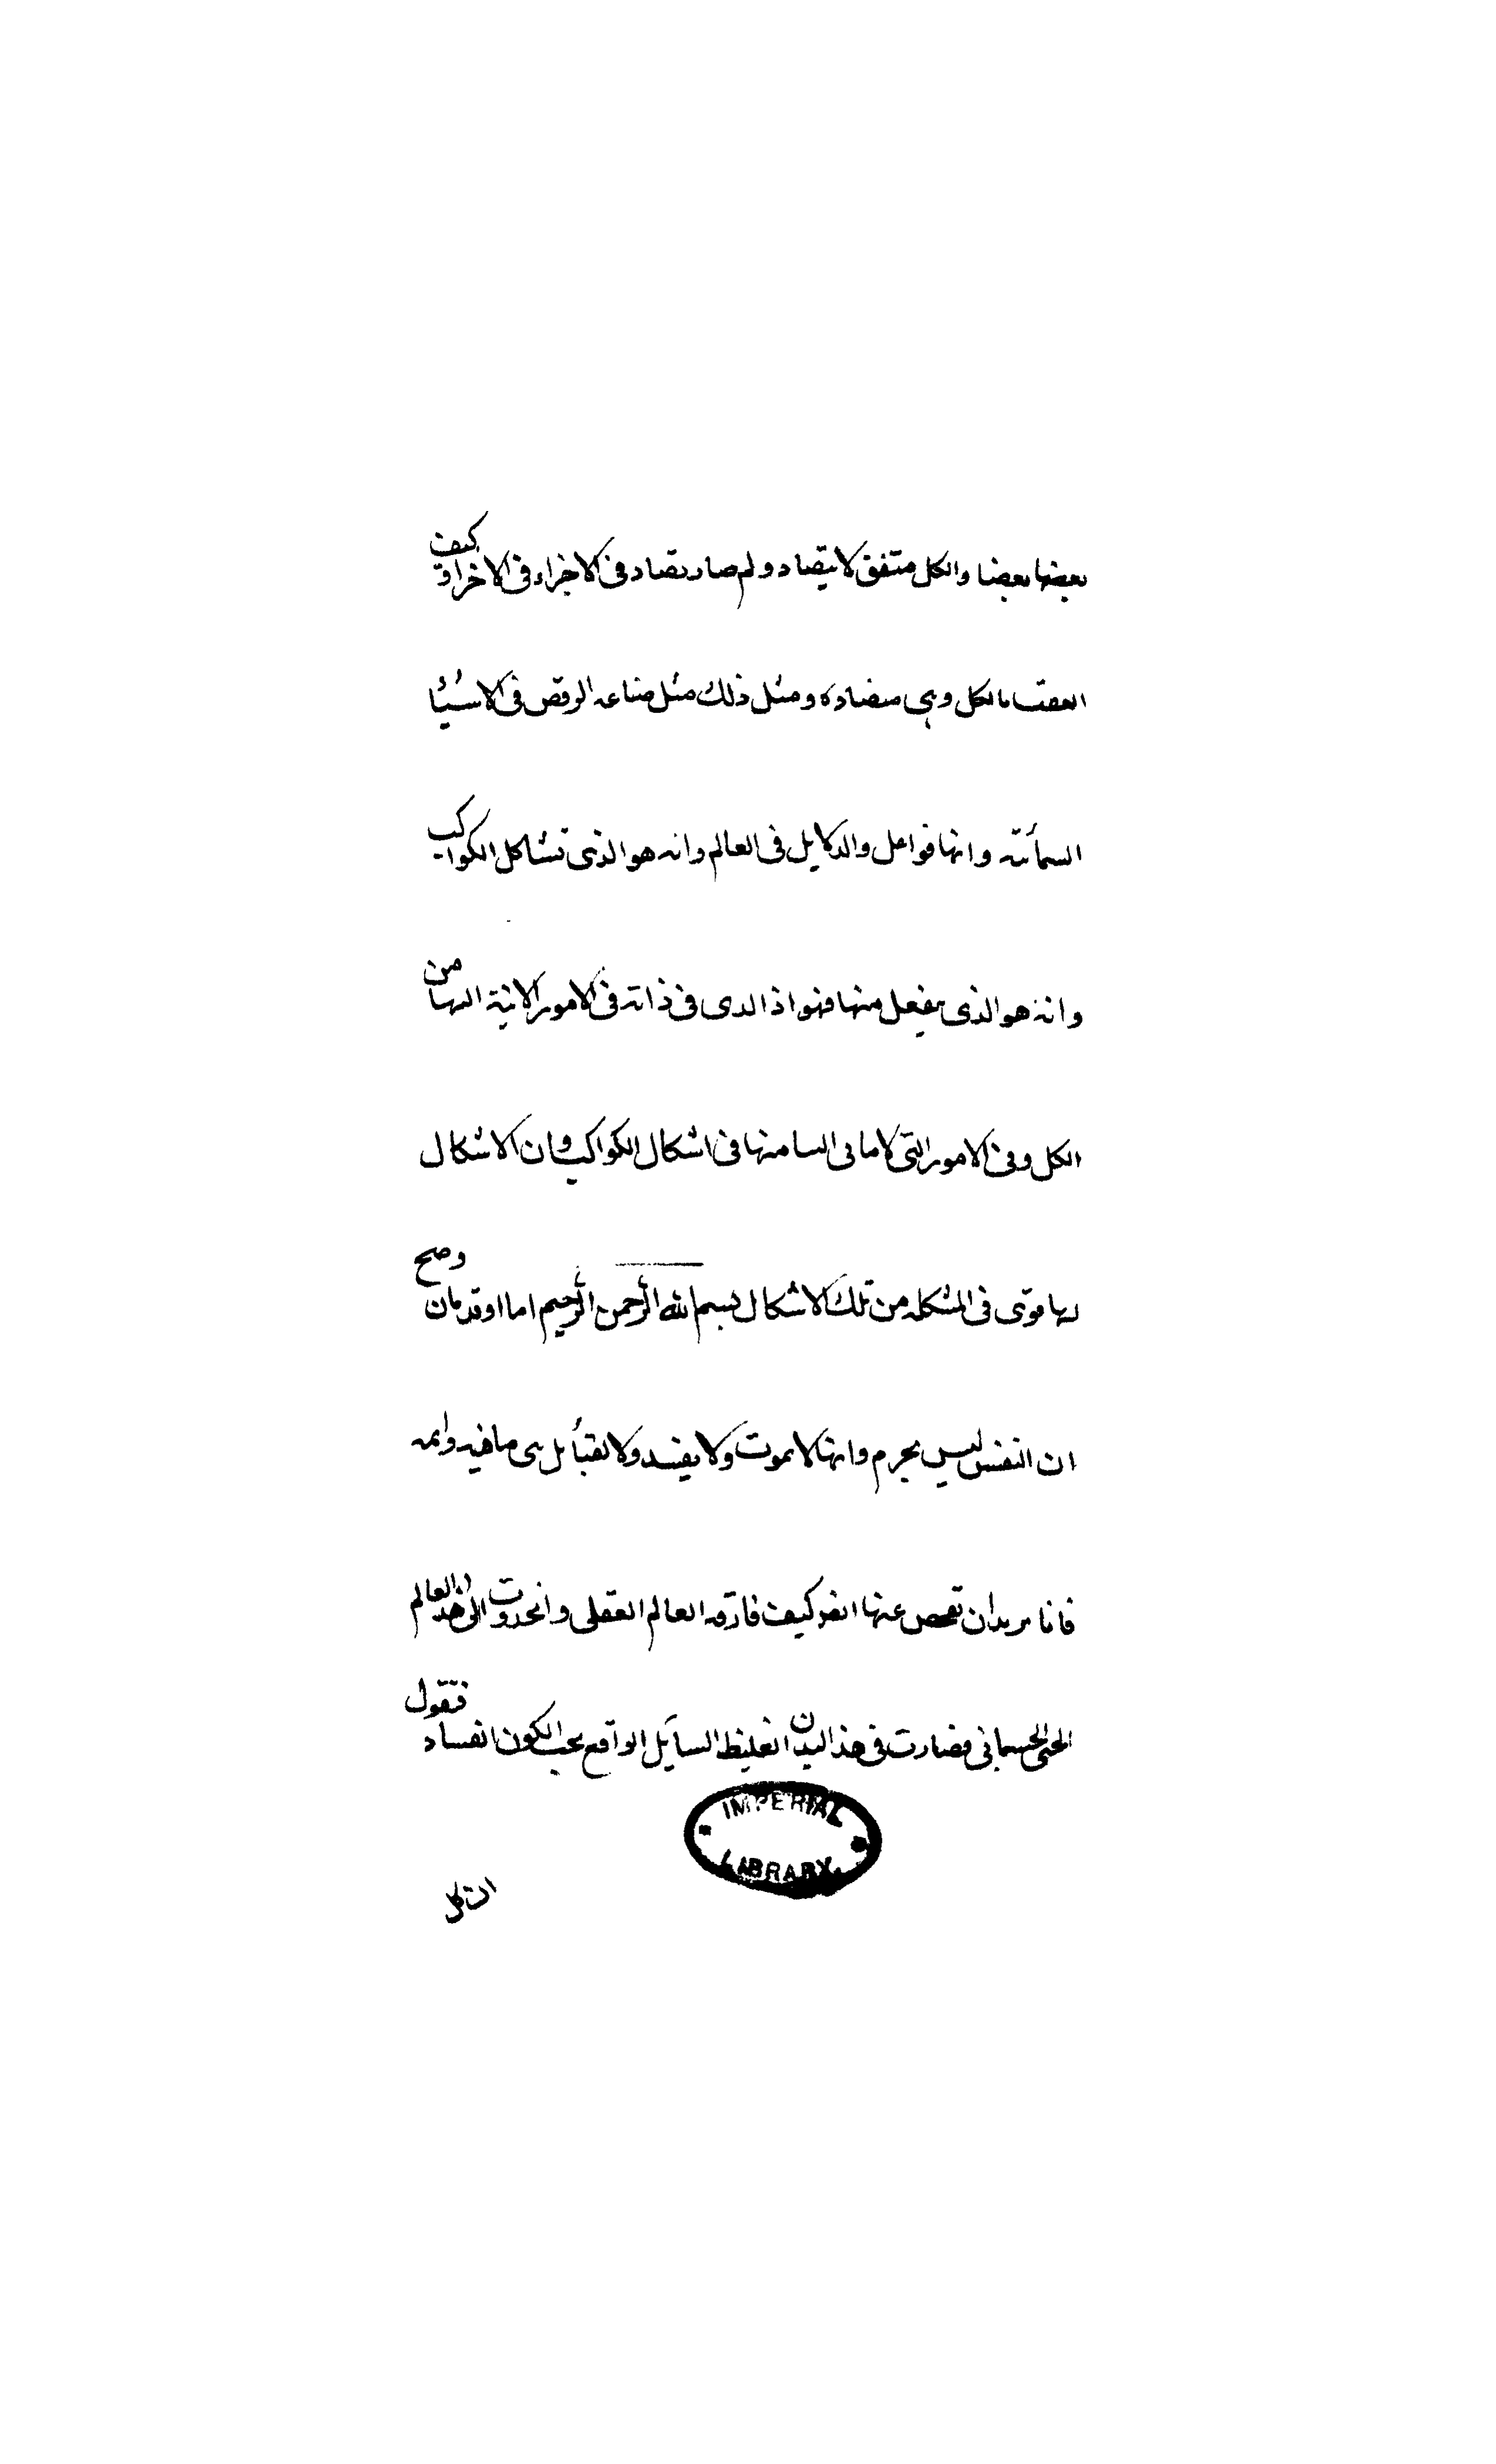 بعضها بعضا والكل متفق لا يتضاد ولم صار تضاد فى الاجزاء فى الاخر او كيف
اتفقت بالكل وهى متضاده ومثل ذلك مثل صناعه الرقص فى الاشيا
السمائية وانها فواعل والدلايل فى العالم وانه هو الذى تشاكل الكواكب
وانه هو الذى ينفعل منها فهو اذا الذى فى ذاته فى الامور الاتية الىها من
الكل وفى الامور التى لاماتى الينا منها فى اشكال الكواكب وان الاشكال
لها قوى فى المشكله من تلك الاشكال بسم الله الرحمن الرحيم اما او قد بان وصح
ان النفس ليس بجرم وانها لا تموت ولا يفسد ولا تفنا بل هى باقيه دايمه
فانا نريد ان نفحص عنها ايضا كيف فارقه العالم العقلى وانحدرت الى هذا العالم
الحسى الجسمانى فصارت فى هذا البدن الغليظ السايل الواقع تحت الكون الفساد فنقول
ان كل
IMPERIAL
LIBRARY